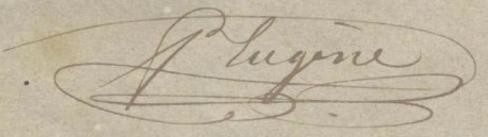 P Eugène